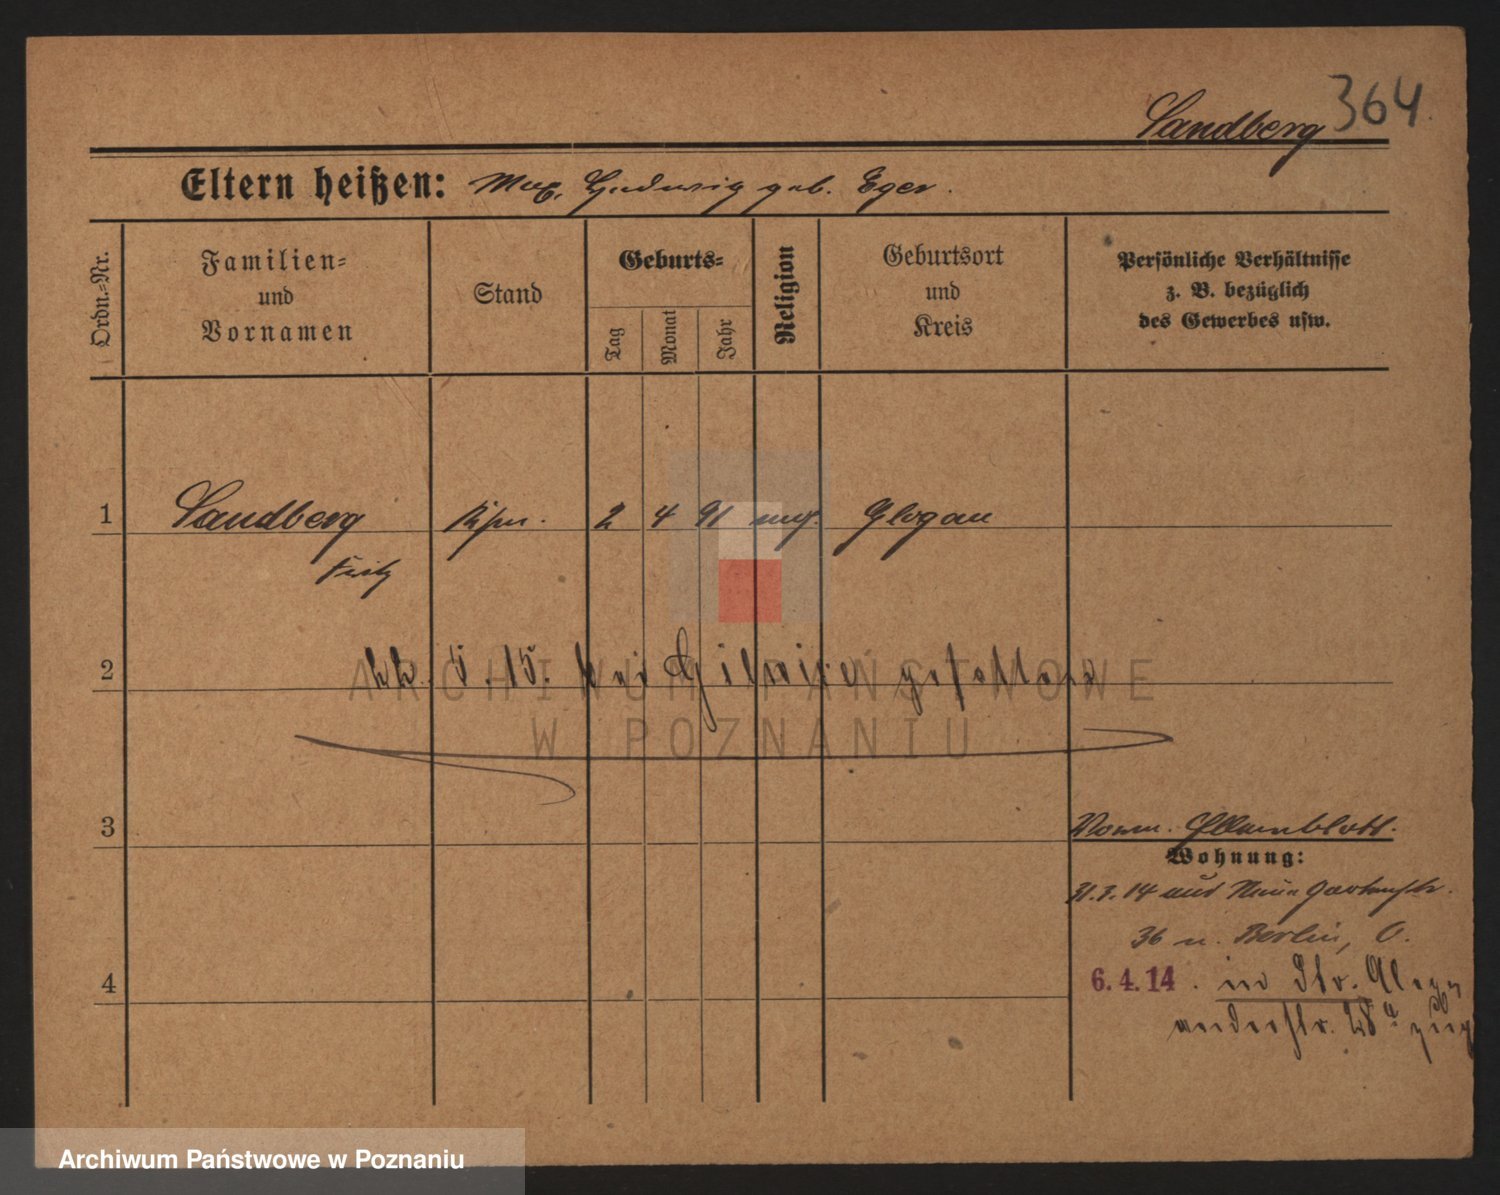 Sandberg 364.
Eltern heißen: Max, Hedwig geb. Eger.
Ordn.-Nr.
Familien-
und
Vornamen
Stand
Geburts-
Tag
Monat
Jahr
Religion
Geburtsort
und
Kreis
Persönliche Verhältnisse
z. B. bezüglich
des Gewerbes usw.
1 Sandberg 2 4 91 Glogau
Fritz
2 5. 15. bei gefallen
ARCHIWUM PAŃSTWOWE
W POZNANIU
3
Wohnung:
31.3.14 aus Neue Gartenstr.
36 n. Berlin, O.
4 6.4.14. in Str.
28a zug
Archiwum Państwowe w Poznaniu